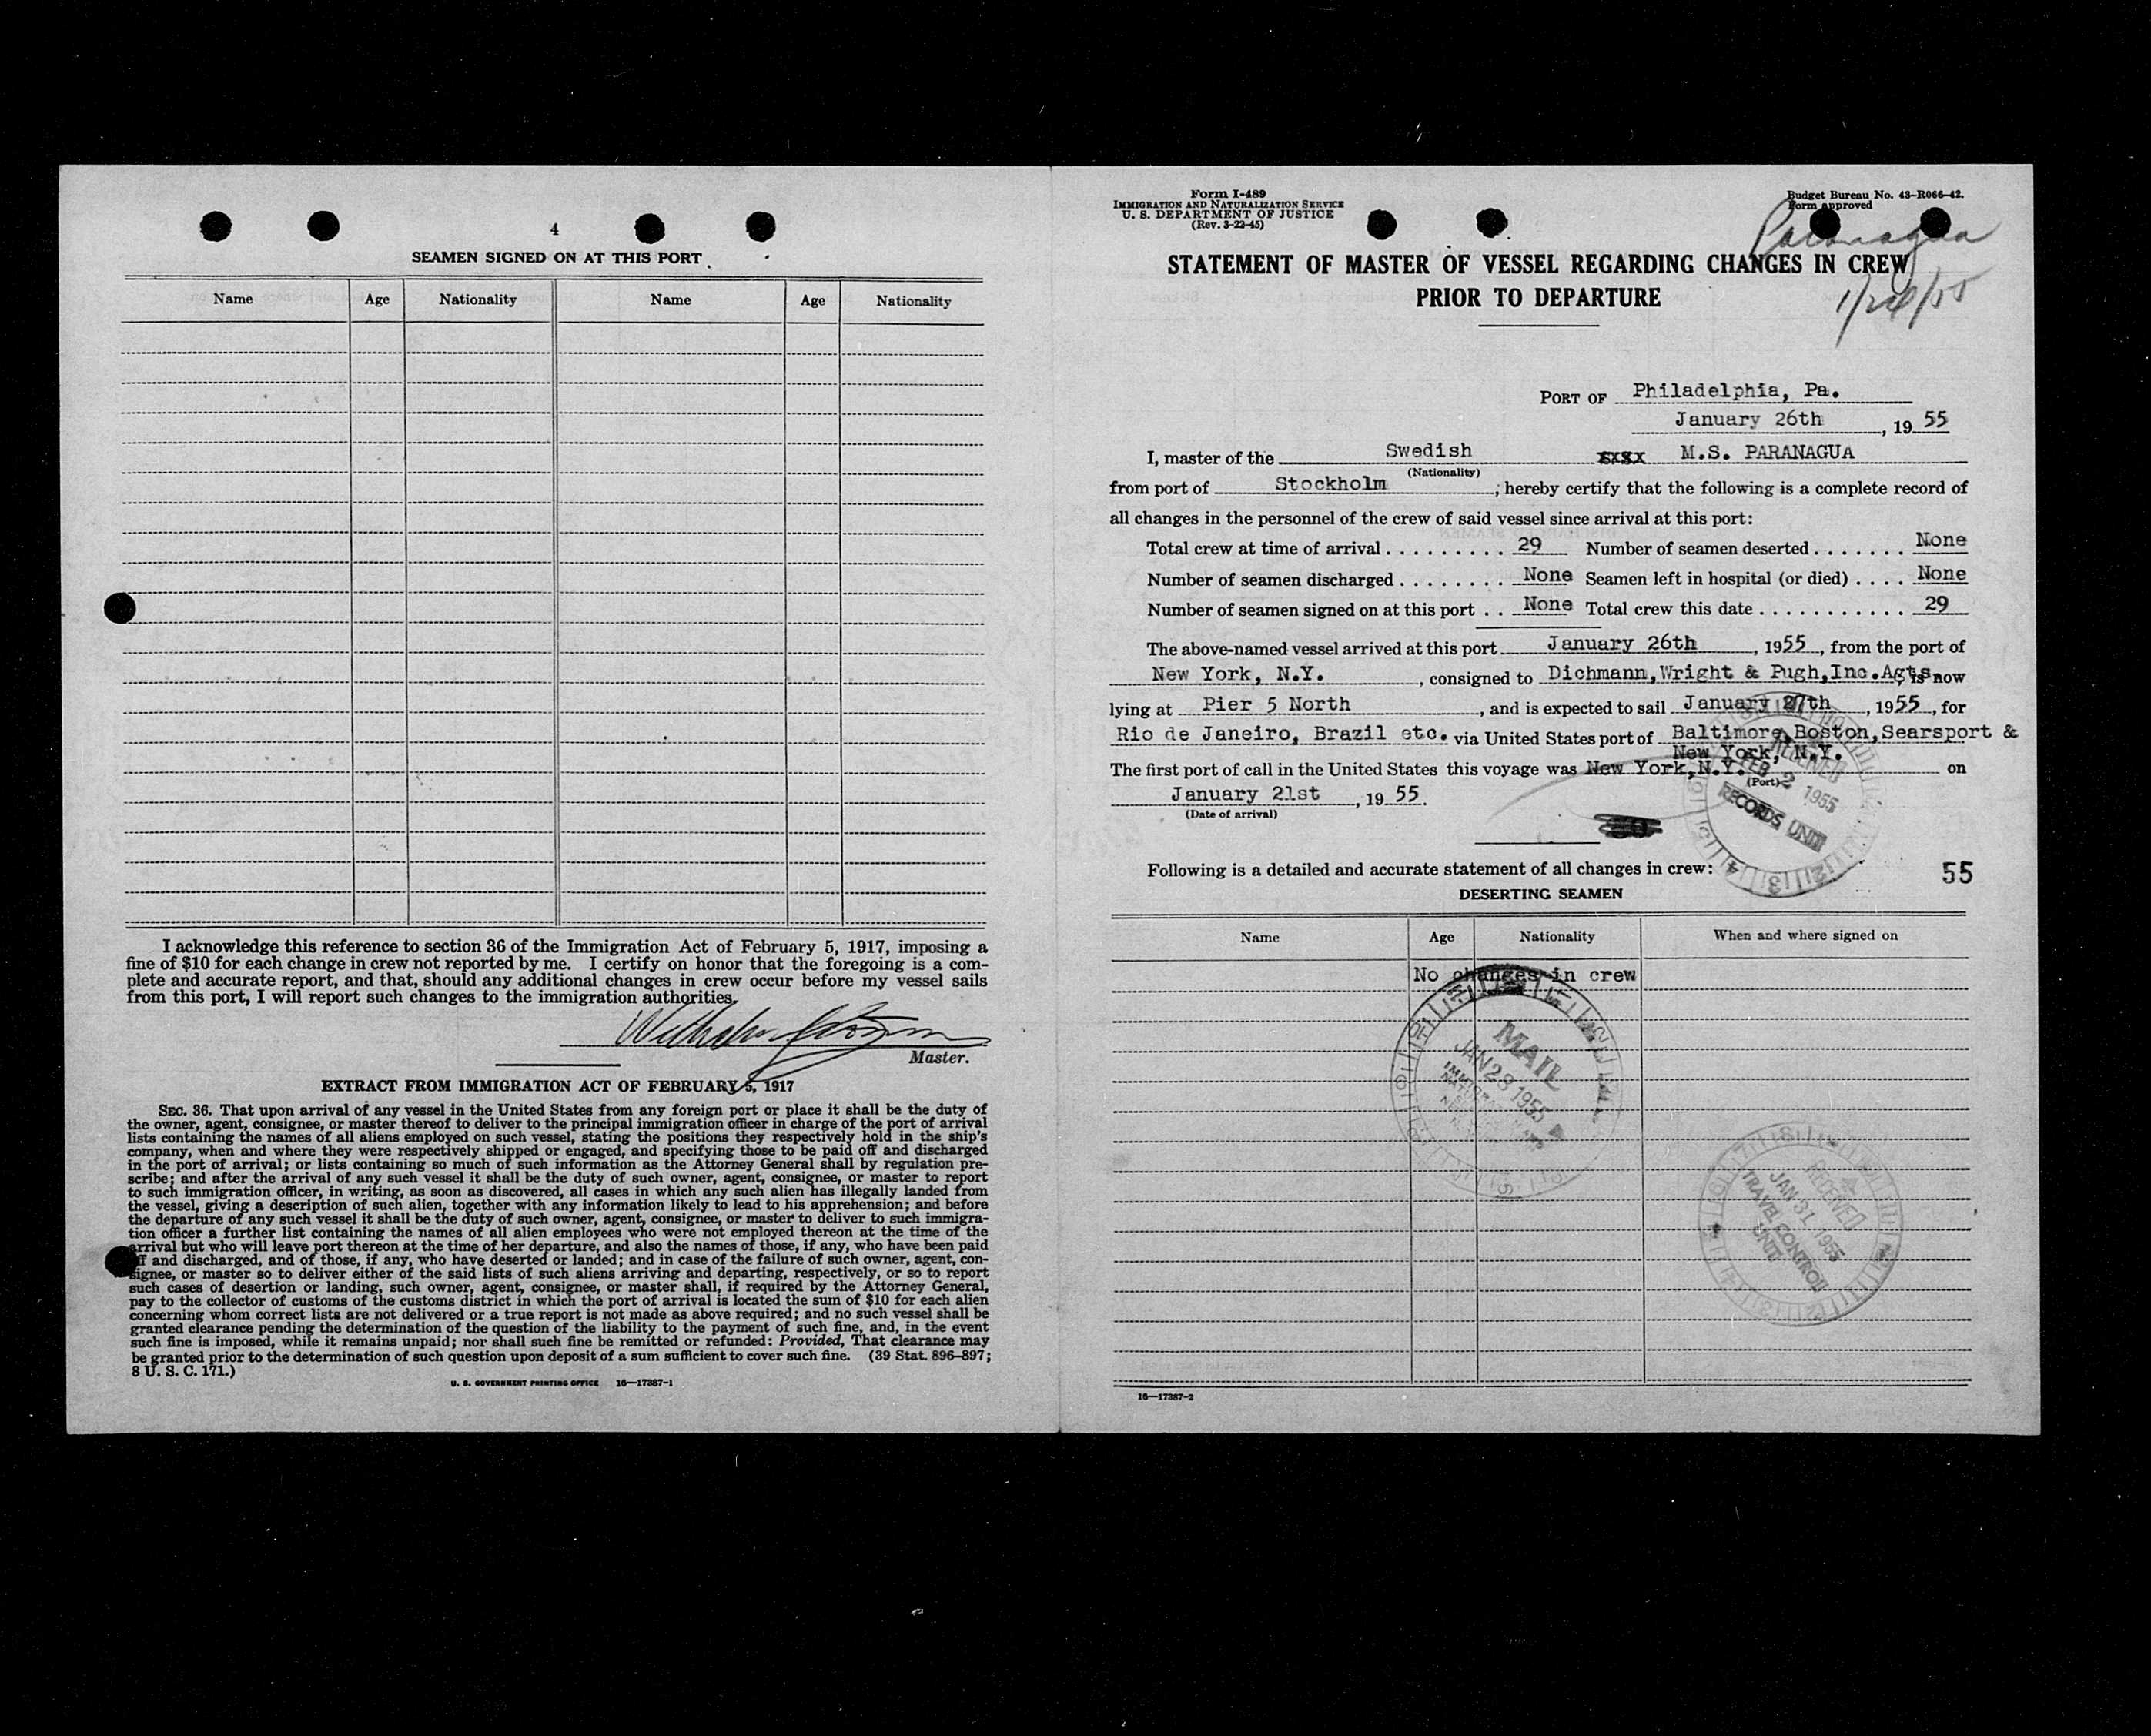 4
SEAMEN SIGNED ON AT THIS PORT
Name Age Nationality Name Age Nationality
I acknowledge this reference to section 36 of the Immigration Act of February 5, 1917, imposing a
fine of $10 for each change in crew not reported by me. I certify on honor that the foregoing is a com-
plete and accurate report, and that, should any additional changes in crew occur before my vessel sails
from this port, I will report such changes to the immigration authorities.
Master.
EXTRACT FROM IMMIGRATION ACT OF FEBRUARY 5, 1917
SEC. 36. That upon arrival of any vessel in the United States from any foreign port or place it shall be the duty of
the owner, agent, consignee, or master thereof to deliver to the principal immigration officer in charge of the port of arrival
lists containing the names of all aliens employed on such vessel, stating the positions they respectively hold in the ship's
company, when and where they were respectively shipped or engaged, and specifying those to be paid off and discharged
in the port of arrival; or lists containing so much of such information as the Attorney General shall by regulation pre-
scribe; and after the arrival of any such vessel it shall be the duty of such owner, agent, consignee, or master to report
to such immigration officer, in writing, as soon as discovered, all cases in which any such alien has illegally landed from
the vessel, giving a description of such alien, together with any information likely to lead to his apprehension; and before
the departure of any such vessel it shall be the duty of such owner, agent, consignee, or master to deliver to such immigra-
tion officer a further list containing the names of all alien employees who were not employed thereon at the time of the
arrival but who will leave port thereon at the time of her departure, and also the names of those, if any, who have been paid
off and discharged, and of those, if any, who have deserted or landed; and in case of the failure of such owner, agent, con-
signee, or master so to deliver either of the said lists of such aliens arriving and departing, respectively, or so to report
such cases of desertion or landing, such owner, agent, consignee, or master shall, if required by the Attorney General,
pay to the collector of customs of the customs district in which the port of arrival is located the sum of $10 for each alien
concerning whom correct lists are not delivered or a true report is not made as above required; and no such vessel shall be
granted clearance pending the determination of the question of the liability to the payment of such fine, and, in the event
such fine is imposed, while it remains unpaid; nor shall such fine be remitted or refunded: Provided, That clearance may
be granted prior to the determination of such question upon deposit of a sum sufficient to cover such fine. (39 Stat. 896–897;
8 U. S. C. 171.)
U. S. GOVERNMENT PRINTING OFFICE 16—17387-1
Form I-489
IMMIGRATION AND NATURALIZATION SERVICE
U. S. DEPARTMENT OF JUSTICE
(Rev. 3-22-45)
Budget Bureau No. 43-R066-42.
Form approved
Paranagua
STATEMENT OF MASTER OF VESSEL REGARDING CHANGES IN CREW
PRIOR TO DEPARTURE
PORT OF Philadelphia, Pa.
January 26th, 1955
I, master of the Swedish M.S. PARANAGUA
(Nationality)
from port of Stockholm, hereby certify that the following is a complete record of
all changes in the personnel of the crew of said vessel since arrival at this port:
Total crew at time of arrival . . . . . . . . . 29 Number of seamen deserted . . . . . . . None
Number of seamen discharged . . . . . . . . None Seamen left in hospital (or died) . . . . None
Number of seamen signed on at this port . . None Total crew this date . . . . . . . . . . . . 29
The above-named vessel arrived at this port January 26th, 1955, from the port of
New York, N.Y., consigned to Dichmann,Wright & Pugh,Inc.Agts, is now
lying at Pier 5 North, and is expected to sail January 27th, 1955, for
Rio de Janeiro, Brazil etc. via United States port of Baltimore, Boston,Searsport &
New York, N.Y.
The first port of call in the United States this voyage was New York,N.Y. on
(Port)
January 21st, 1955.
(Date of arrival)
RECEIVED
FEB 2 1955
RECORDS UNIT
Following is a detailed and accurate statement of all changes in crew:
55
DESERTING SEAMEN
Name Age Nationality When and where signed on
No changes in crew
MAIL
JAN 28 1955
RECEIVED
JAN 31 1955
TRAVEL CONTROL
UNIT
16—17387-2